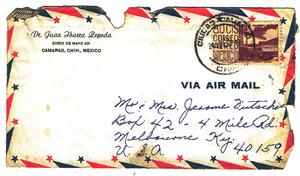 Dr. Juan Ibarra Zepeda
CINCO DE MAYO 401
CAMARGO, CHIH., MEXICO
CORREO
MEXICO
VIA AIR MAIL
Mr & Mrs. Jerome
Box 42 - 4 Mile Rd.
Melbourne Ky.
U S A. 40159